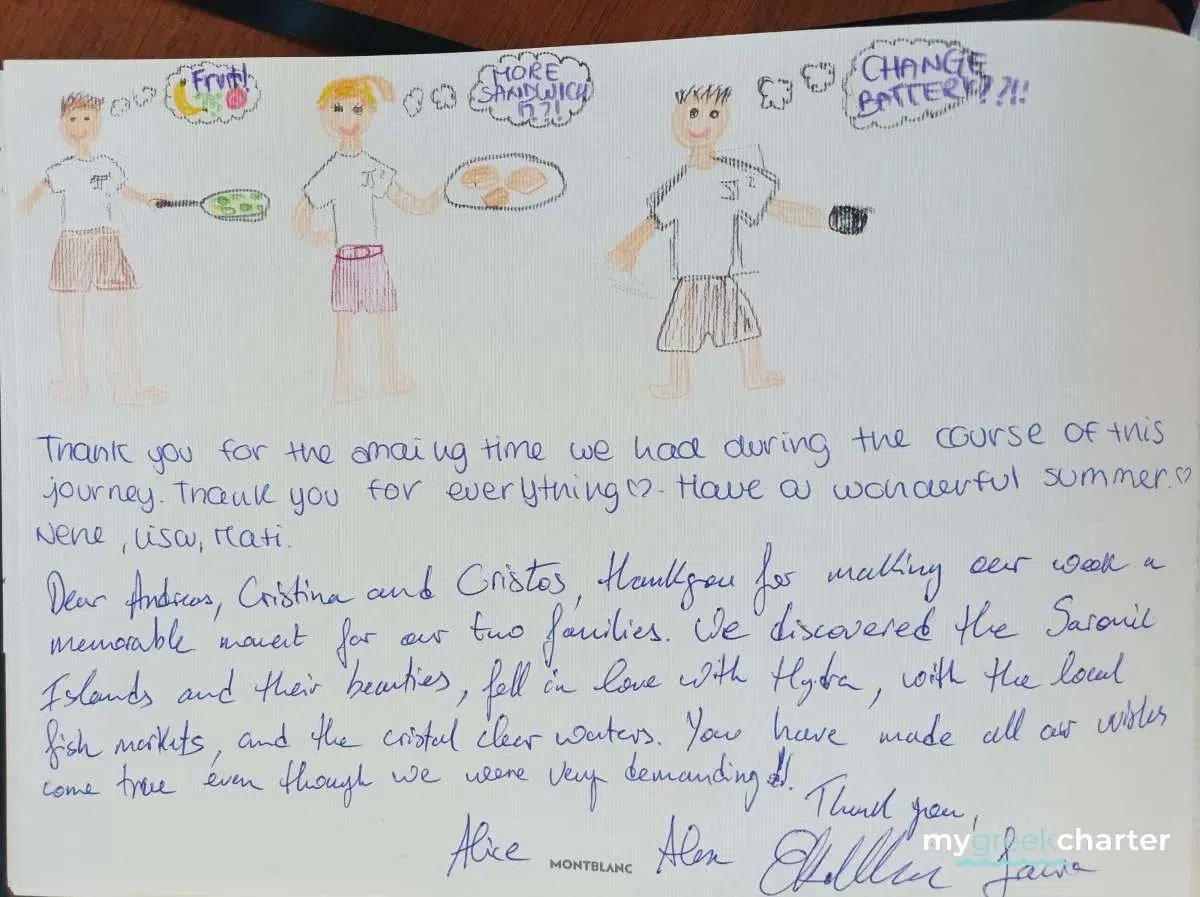 Fruit!
MORE
SANDWICH
!?!
CHANGE
BATTERY??!!
JJ²
JJ²
Thank you for the amaiing time we had during the course of this
journey. Thank you for everything♡. Have a wonderful summer.♡
Nene, Lisa, Mati.
Dear Andreas, Cristina and Cristos, thankyou for making our week a
memorable moment for our two families. We discovered the Saronic
Islands and their beauties, fell in love with Hydra, with the local
fish markets, and the cristal clear waters. You have made all our wishes
come true even though we were very demanding!!.
Thank you,
Alice Alex
MONTBLANC
mygreekcharter